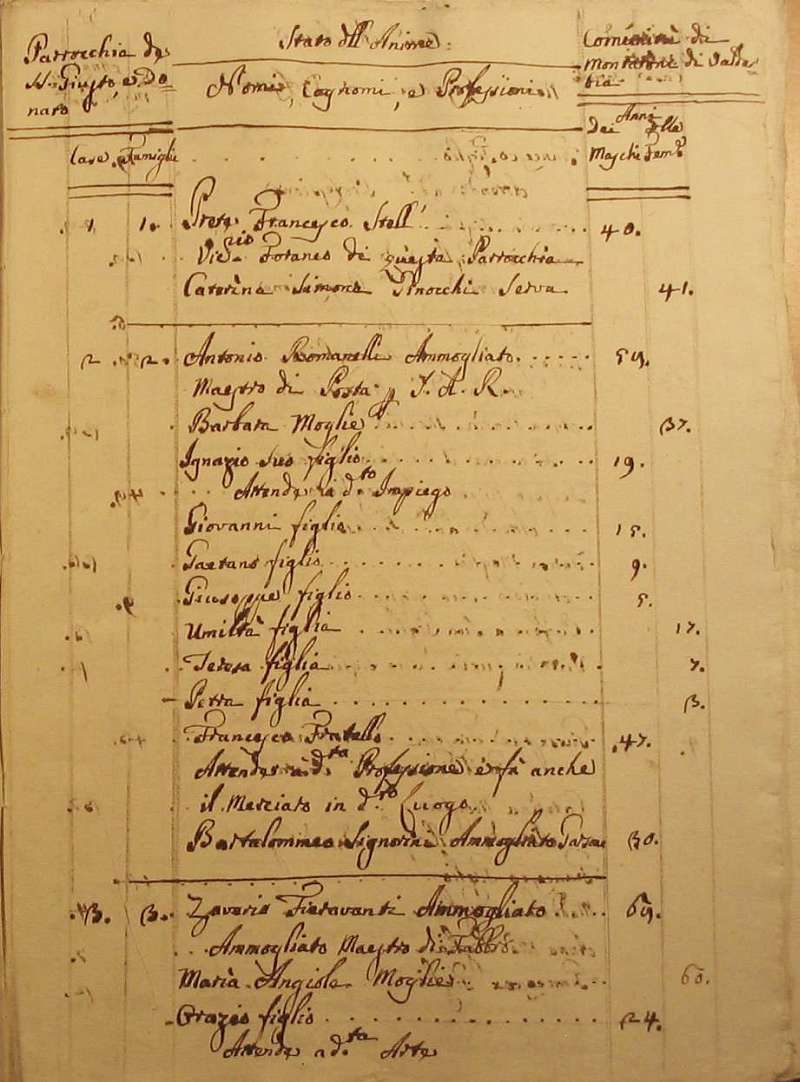 Parrocchia de
SS. Giusto, e Do=
nato
Stato dell Anime:
Nomi, Cognomi, e Professioni
Comunità di
Montecatini di Val
Case Famiglie
Anni
Dei delle
Maschi Femᵉ
1 1. Prete Francesco 40.
di questa Parrocchia
Caterina Simone Pinocchi Serva 41.
2 2. Antonio Romanelli Ammogliato 59.
Maestro di Posta p S. A. R.
Barbara Moglie 37.
Ignazio suo figlio 19.
Attende a dᵗᵒ Impiego
Giovanni figlio 15.
Gaetano figlio 9.
Giuseppe figlio 5.
Umiltà figlia 17.
Teresa figlia 7.
Petra figlia 3.
Francesco Fratello 47.
Attende a dᵗᵃ Professione e fà anche
il Merciaio in dᵗᵒ Luogo
Bartolommeo Signorini Ammogliato Garzone 30.
3. 3. Zaverio Fieravanti Ammogliato 69.
Ammogliato Maestro di Fabbro
Maria Angiola Moglie 60.
Orazio figlio 24.
Attende a dᵗᵃ Arte